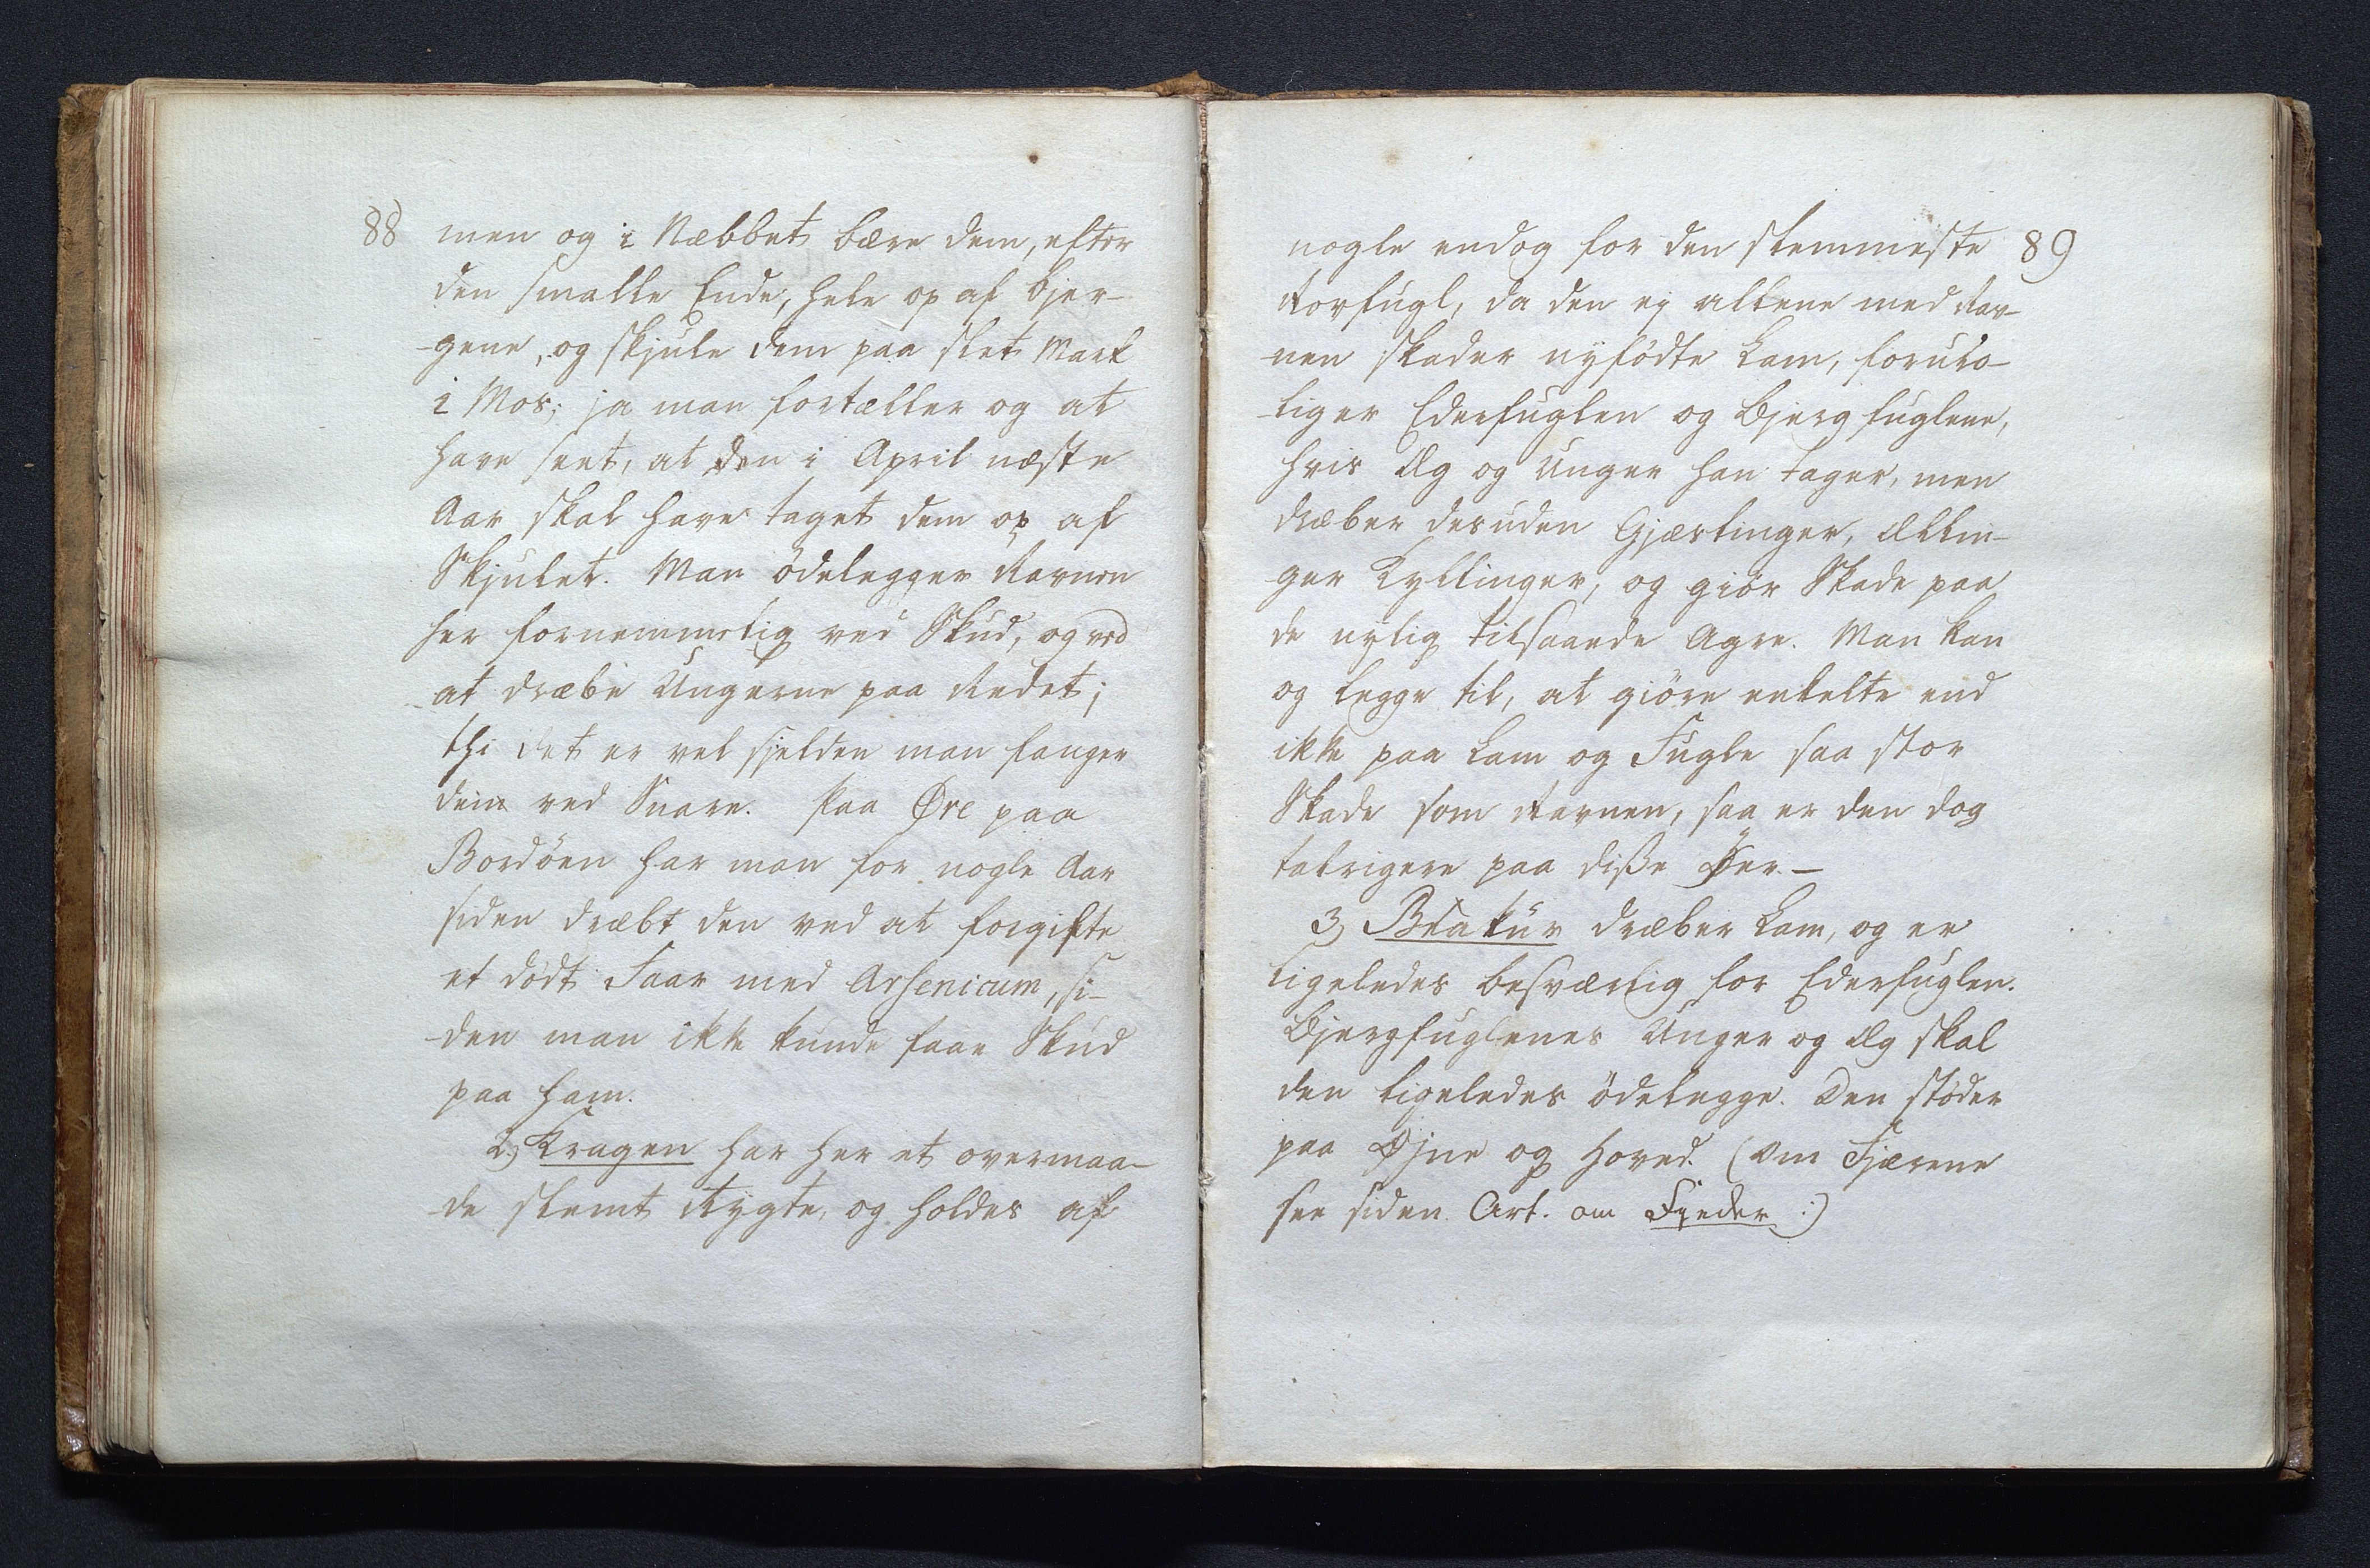 88
men og i Næbbet bære dem, efter
den smalle Ende, hele op af Bjer-
-gene, og skjule dem paa slet Mark
i Mos; ja man fortæller og at
have seet, at den i April næste
Aar skal have taget dem op af
Skjulet. Man ödelegger Ravnen
her fornemmelig ved Skud, og ved
at dræbe Ungerne paa Redet;
thi det er vel sjelden man fanger
dem ved Snare. Paa Øre paa
Bordöen har man for nogle Aar
siden dræbt den ved at forgifte
et dödt Faar med Arsenicum, si-
-den man ikke kunde faae Skud
paa ham.
2) Kragen har her et overmaa-
-de slemt Rygte, og holdes af
89
nogle endog for den slemmeste
Rovfugl, da den ej allene med Rav-
-nen skader nyfödte Lam, foruro-
-liger Ederfuglen og Bjergfuglene,
hvis Æg og Unger han tager, men
dræber desuden Gjæslinger, Ællin-
ger Kyllinger, og giör Skade paa
de nylig tilsaaede Agre. Man kan
og legge til, at giöre enkelte end
ikke paa Lam og Fugle saa stor
Skade som Ravnen, saa er den dog
talrigere paa disse Öer. —
3) Blakür dræber Lam, og er
ligeledes besværlig for Ederfuglen.
Bjergfuglenes Unger og Æg skal
den ligeledes ödelegge. Den stöder
paa Øjne og Hoved. (Om Fjærene
see siden Art. om Fjeder :)